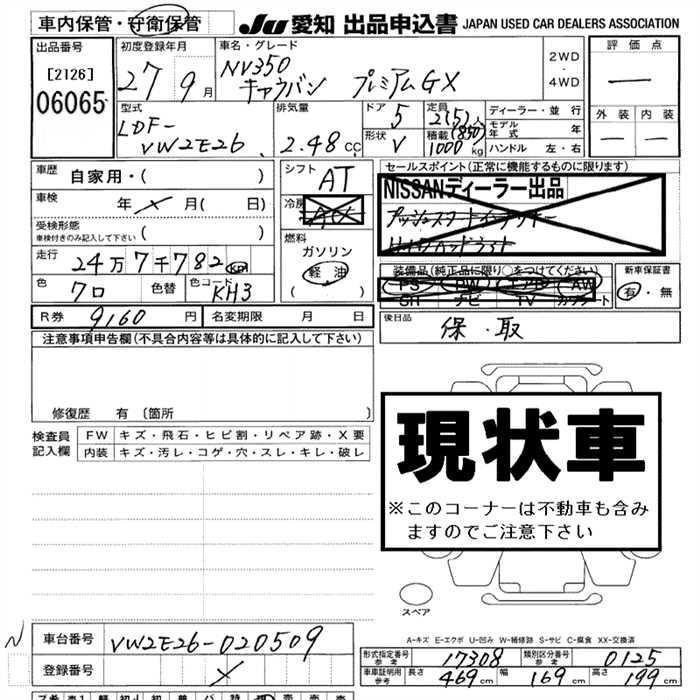 車内保管・守衛保管 JU 愛知 出品申込書 JAPAN USED CAR DEALERS ASSOCIATION
出品番号 初度登録年月 車名・グレード 評価点
[2126] 27 9月 NV350 2WD
06065 キャラバン プレミアムGX ・
4WD
型式 排気量 ドア 5 定員 2(5)人 ディーラー・並行 外装 内装
LDF- 形状 V 積載 (850) モデル年式 年
VW2E26 2.48CC 1000kg ハンドル 左・右
車歴 自家用・( ) シフト AT セールスポイント(正常に機能するものに限ります)
NISSANディーラー出品
車検 年 月( 日) 冷房
プッシュスタートインテリキー
受検形態
車検付きのみ記入して下さい ( ) 燃料
ガソリン
走行 24万7千782km 軽油 装備品(純正品に限り○をつけてください) 新車保証書
( ) PS PW エアB AW 有・無
色 クロ 色替 色コード KH3 SR ナビ TV カワシート
R券 9160円 名変期限 月 日 後日品
保・取
注意事項申告欄(不具合内容等は具体的に記入して下さい)
修復歴 有 〔箇所 〕
現状車
※このコーナーは不動車も含み
ますのでご注意下さい
検査員 FW キズ・飛石・ヒビ割・リペア跡・X要
記入欄 内装 キズ・汚レ・コゲ・穴・スレ・キレ・破レ
スペア
A-キズ E-エクボ U-凹み W-補修跡 S-サビ C-腐食 XX-交換済
N 車台番号 VW2E26-020509
登録番号
形式指定番号 参考 17308 類別区分番号 参考 0125
車車証明用 参考 長さ 469cm 幅 169cm 高さ 199cm